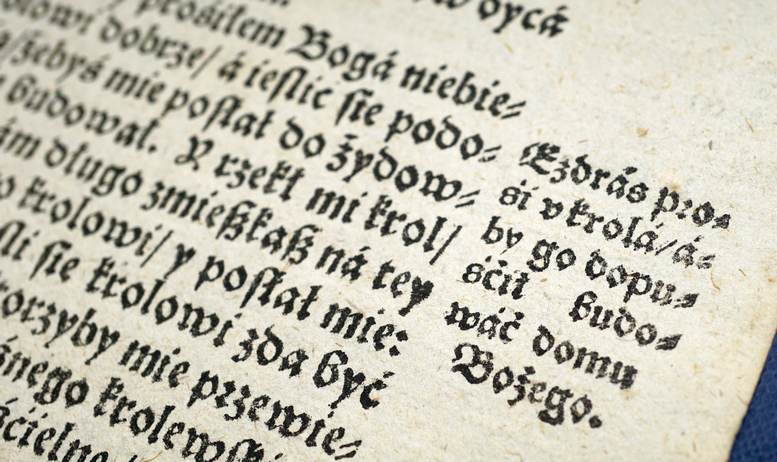 oycá
prosiłem Bogá niebie⸗
dobrze/ á ieſlić ſie podo⸗
żebyś mie poſłał do żydow⸗
budował. Y rzekł mi krol/
długo zmießkaß ná tey
krolowi/ y poſłał mie:
ſie krolowi zda być
mie przewie⸗
krolewſki
Ezdráś pro⸗
śi v krolá/á⸗
by go dopu⸗
śćił budo⸗
wáć domu
Bożego.